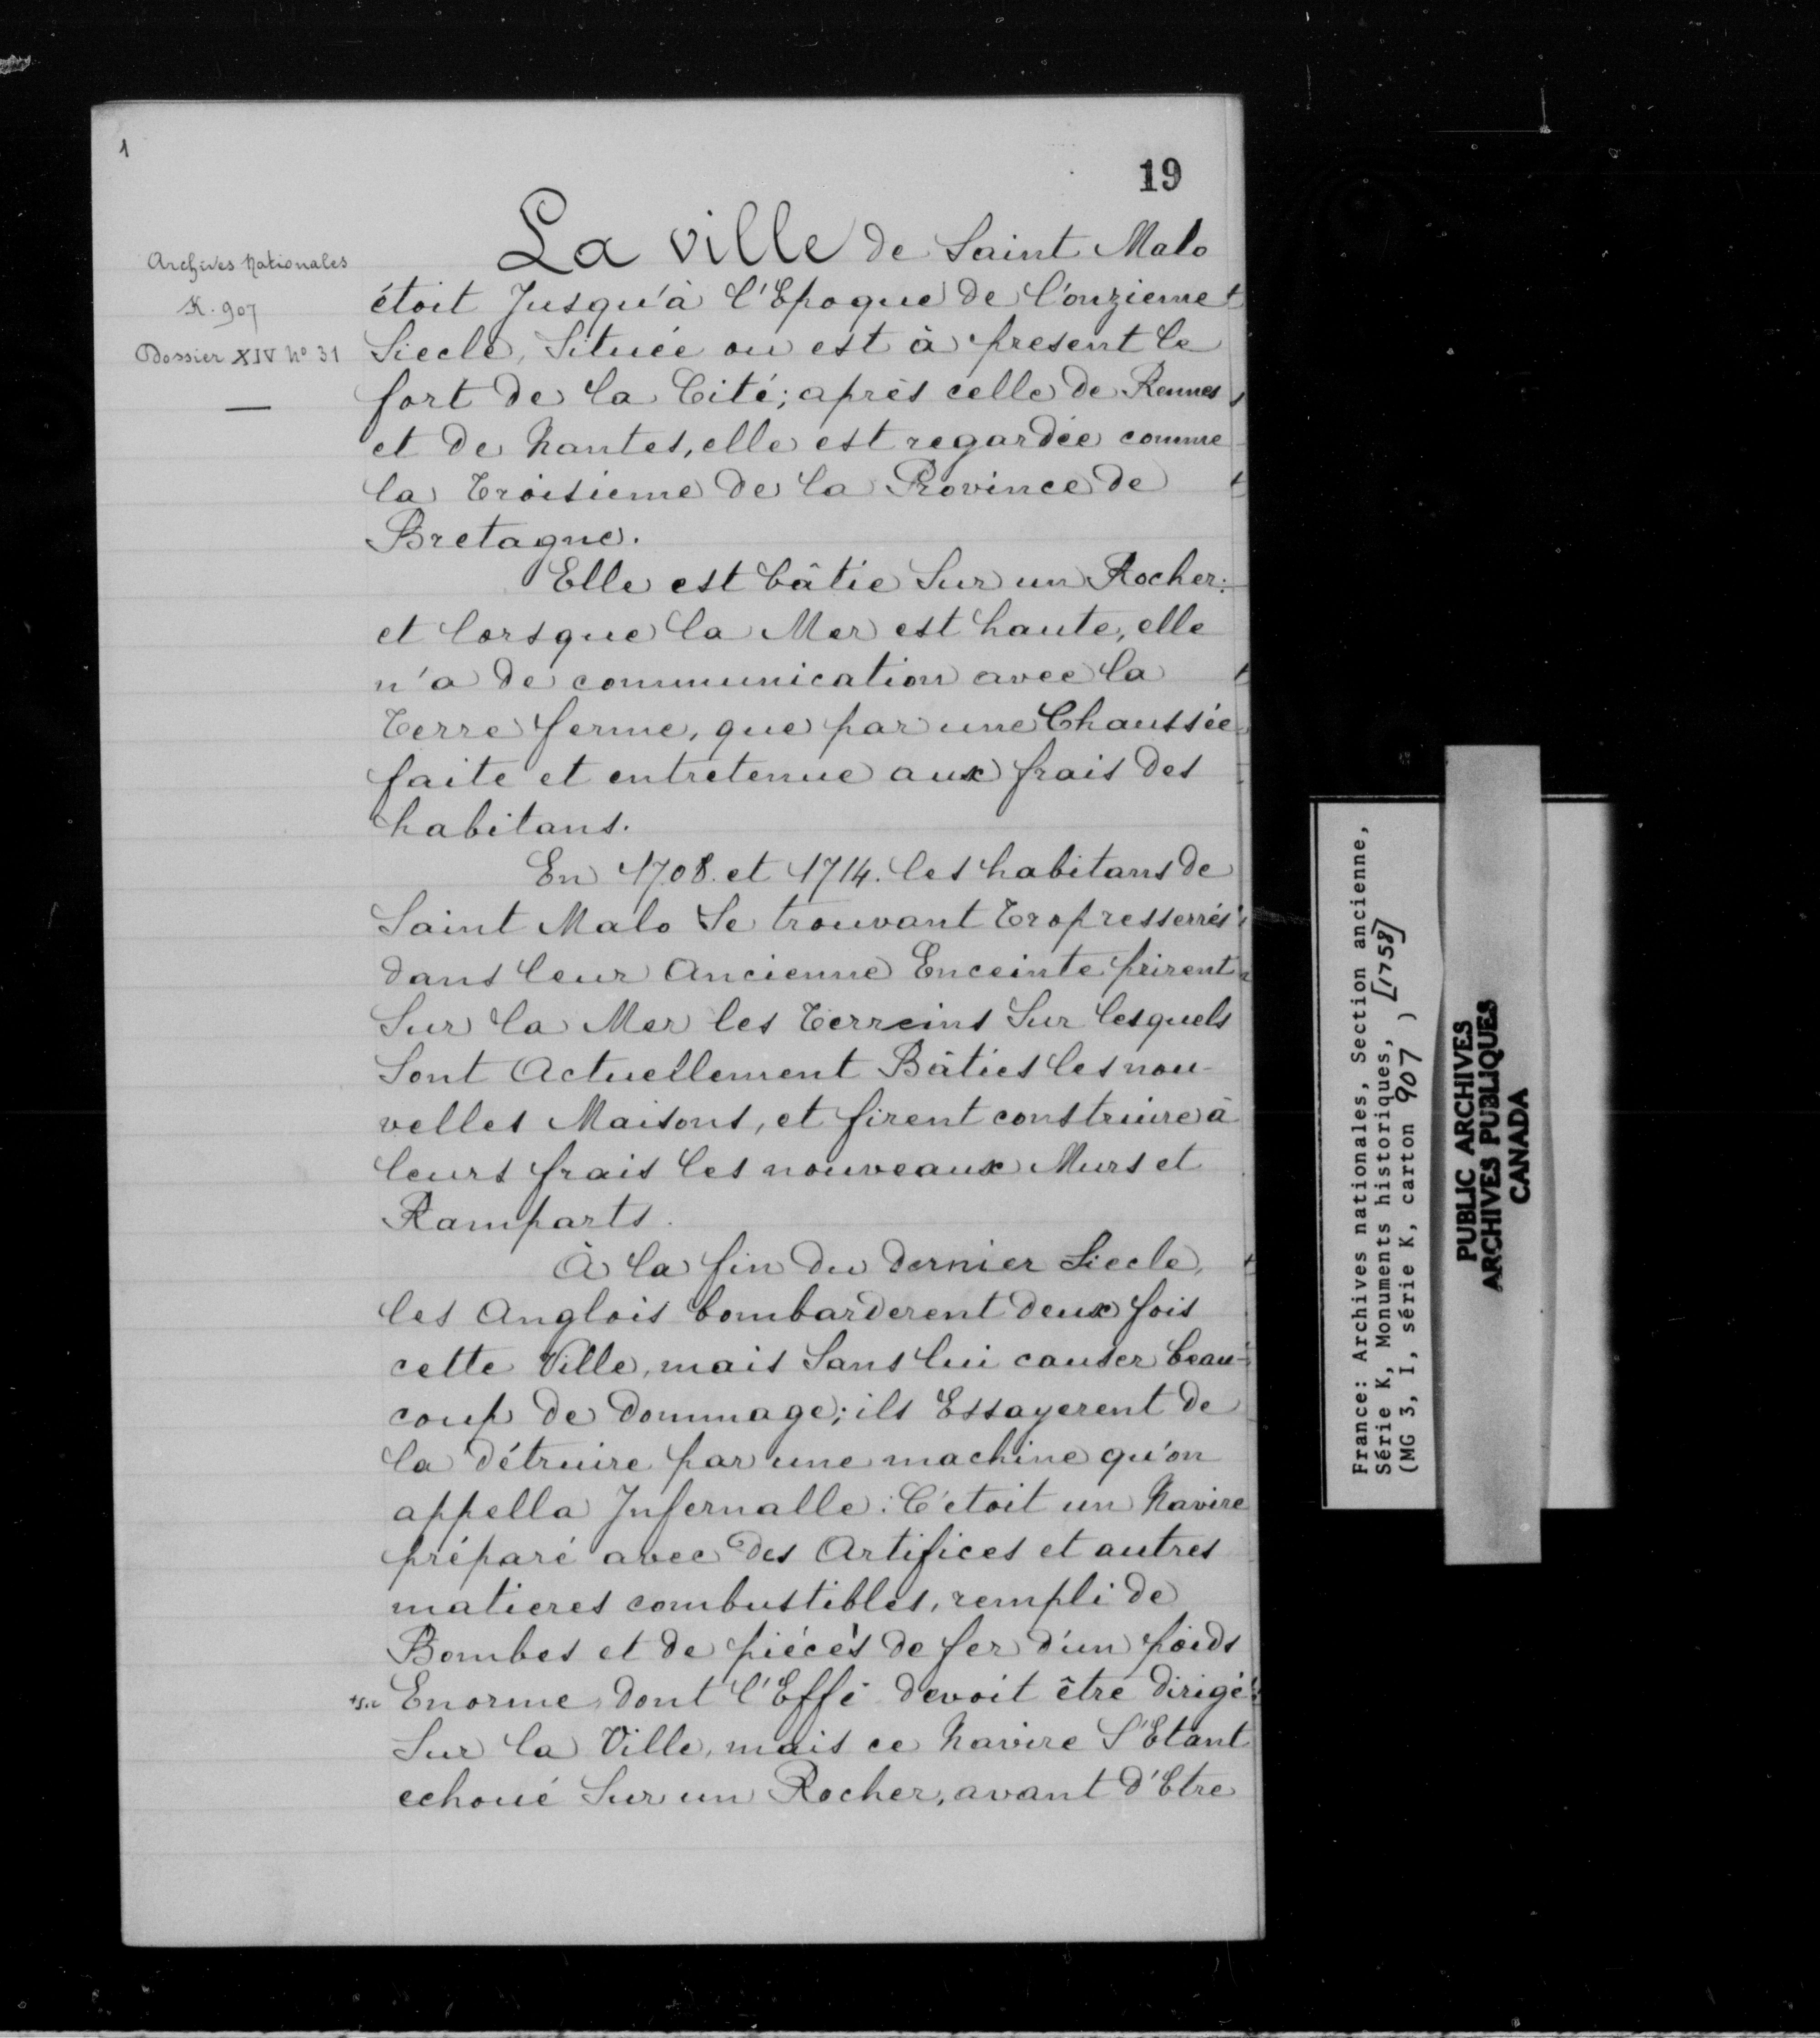 1
19
Archives Nationales
K. 907
Dossier XIV No 31
La ville de Saint Malo
étoit Jusqu'à l'Epoque de l'onzieme
Siecle, Située ou est à present le
fort de la Cité; après celle de Rennes
et de Nantes, elle est regardée comme
la Troisieme de la Province de
Bretagne.
Elle est bâtie Sur un Rocher:
et lorsque la Mer est haute, elle
n'a de communication avec la
Terre ferme, que par une Chaussée
faite et entretenue aux frais des
habitans.
En 1708. et 1714. les habitans de
Saint Malo Se trouvant Trop resserrés
dans leur Ancienne Enceinte prirent
Sur la Mer les Terreins Sur lesquels
Sont Actuellement Bâties les nou-
velles Maisons, et firent construire à
leurs frais les nouveaux Murs et
Ramparts.
À la fin du dernier Siecle,
les Anglois bombarderent deux fois
cette Ville, mais Sans lui causer beau-
coup de dommage; ils Essayerent de
la détruire par une machine qu'on
appella Infernalle: C'étoit un Navire
préparé avec des Artifices et autres
matieres combustibles, rempli de
Bombes et de piécés de fer d'un poids
Enorme dont l'Effé devoit être dirigé
Sur la Ville, mais ce Navire S'Etant
echoué Sur un Rocher, avant d'Etre
France: Archives nationales, Section ancienne,
Série K, Monuments historiques, [1758]
(MG 3, I, série K, carton 907 )
PUBLIC ARCHIVES
ARCHIVES PUBLIQUES
CANADA